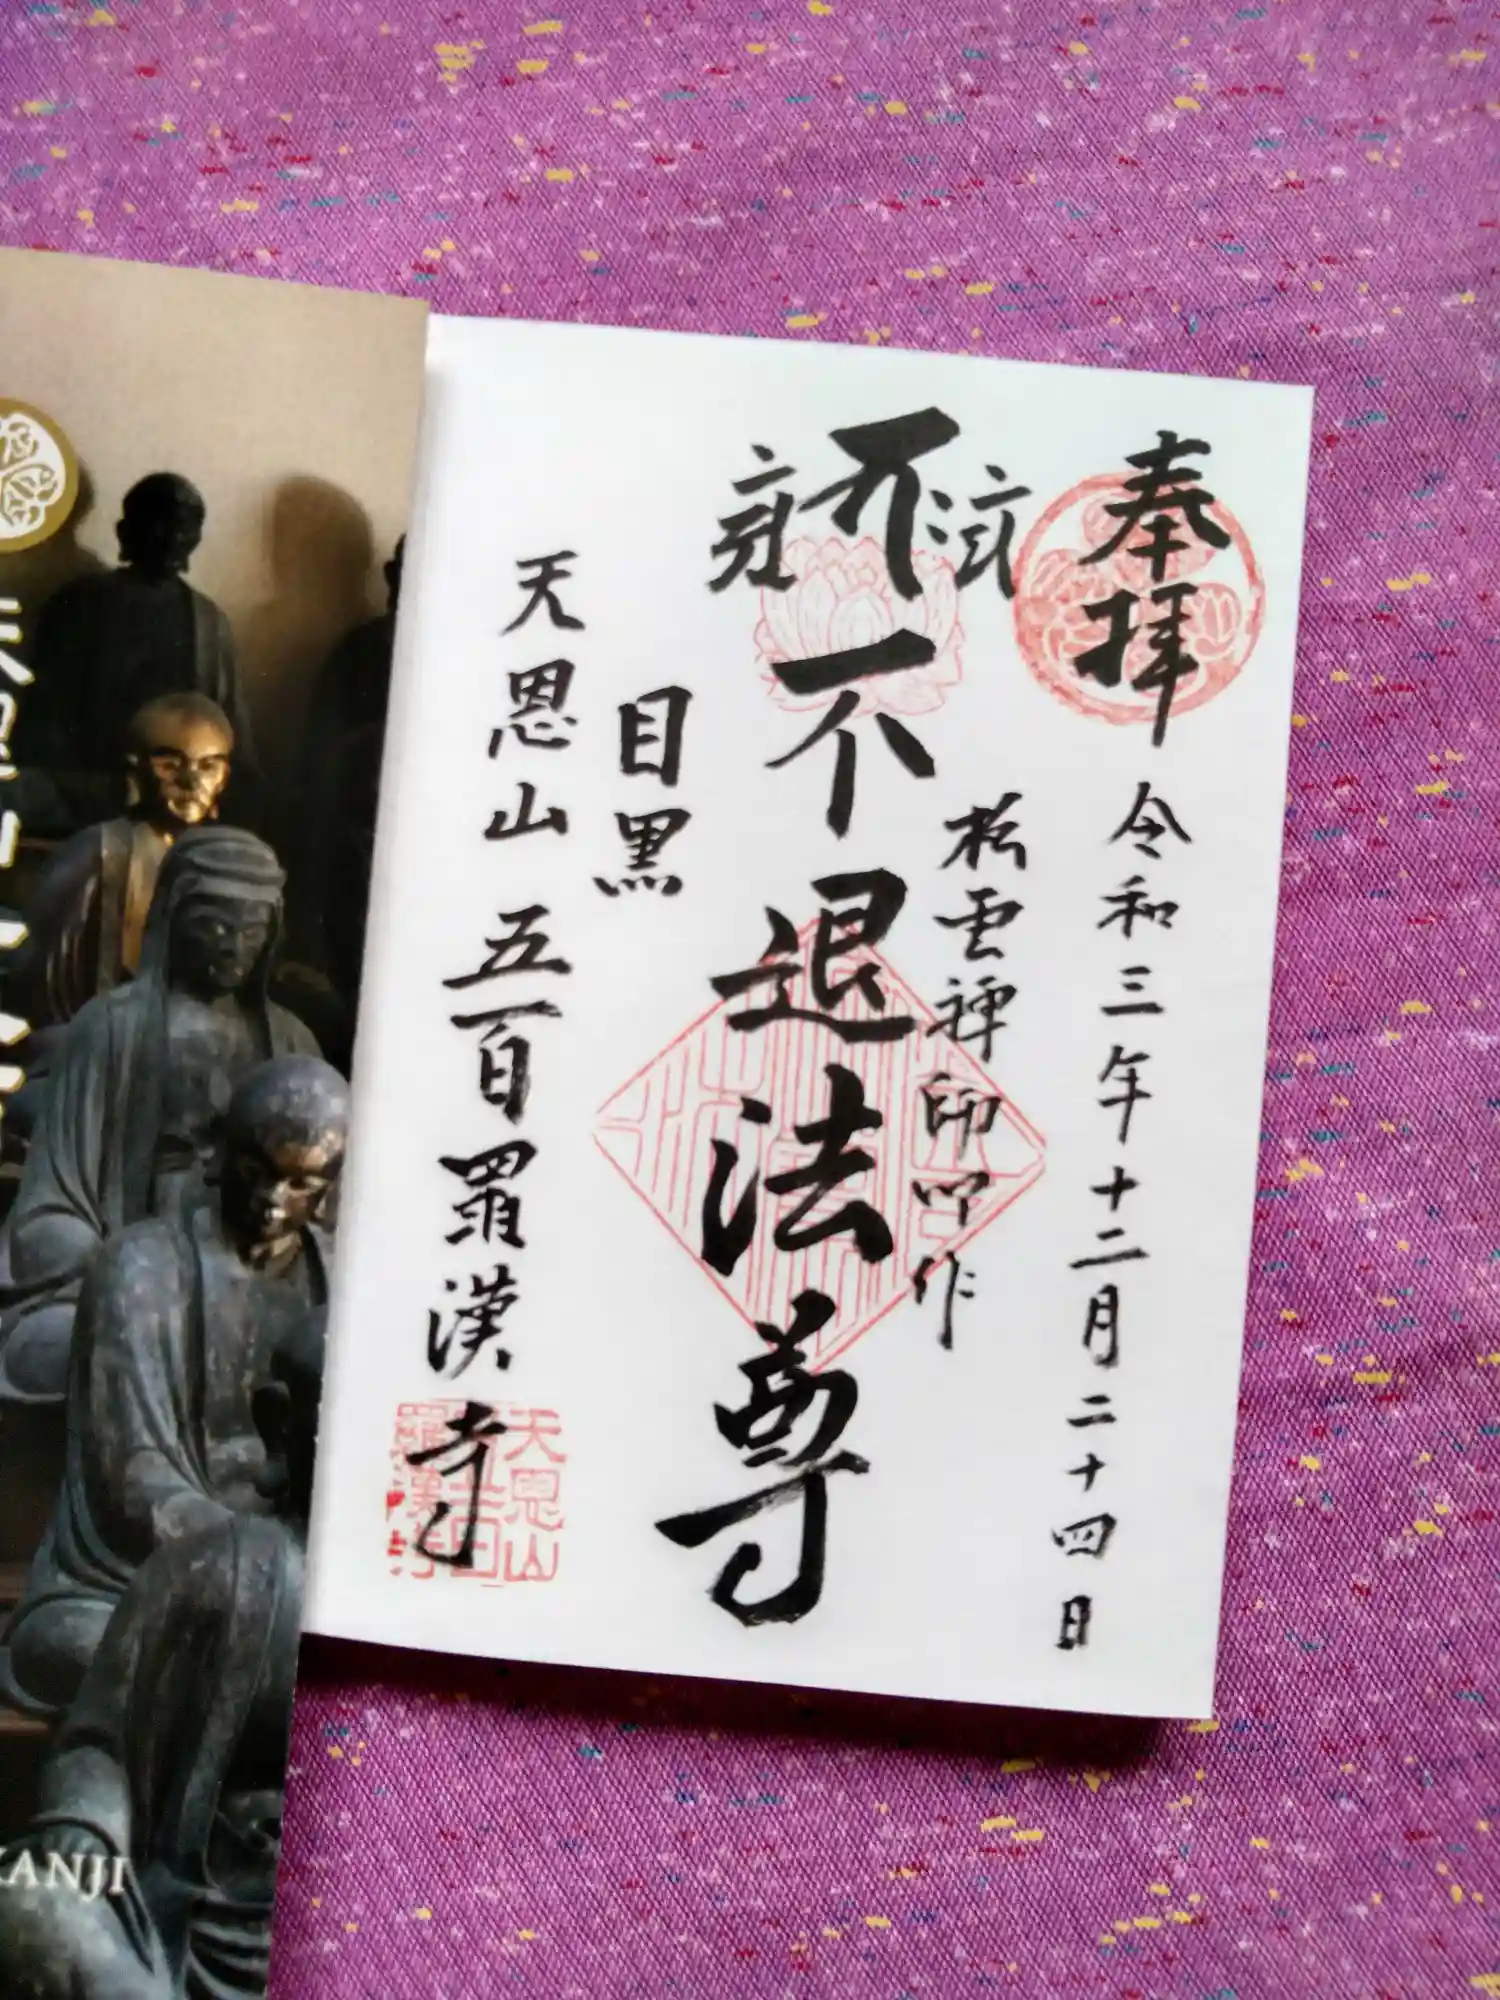 奉拝
令和三年十二月二十四日
松雲禅師作
不退法尊
目黒
天恩山
五百羅漢寺
天恩山
五百
羅漢寺
KANJI